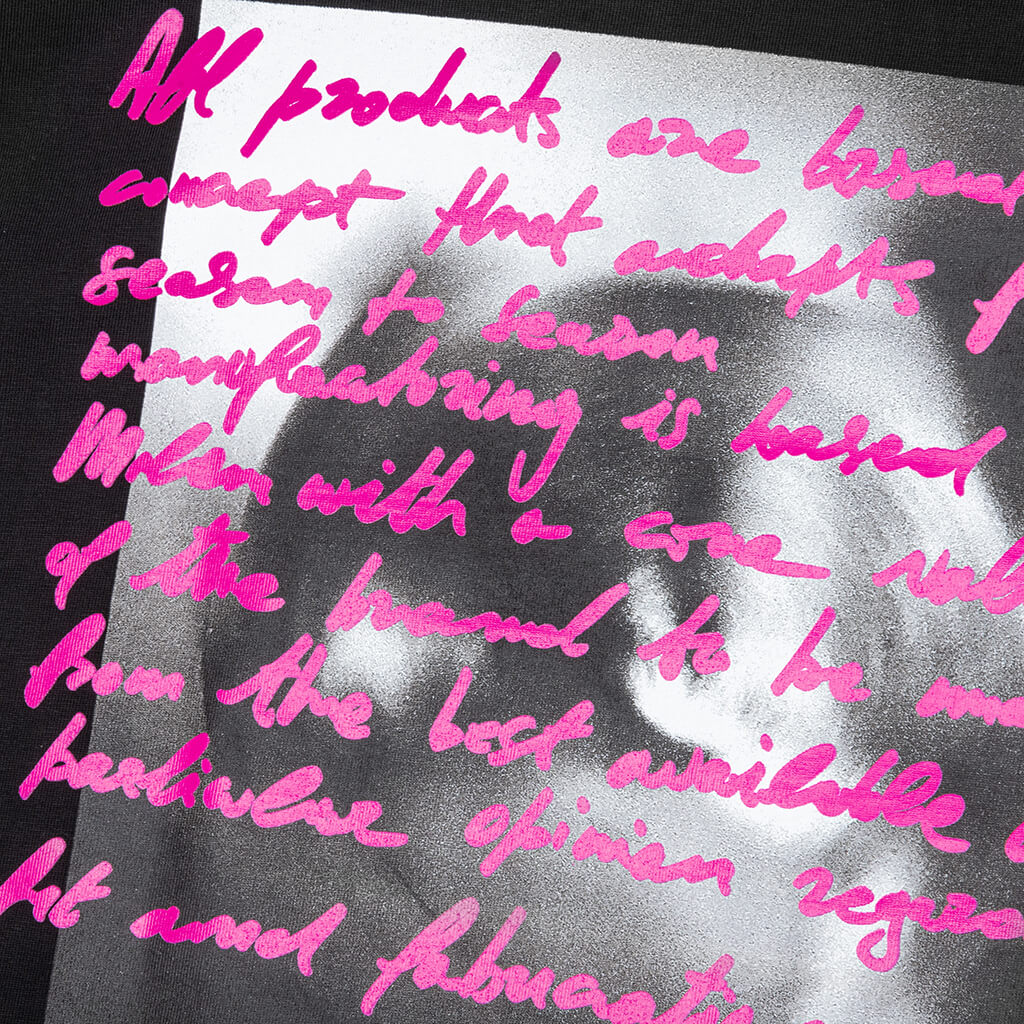 All products are based
concept that adapts f
season to season
manufactoring is based
Milan with a core val
of the brand to be ma
from the best available
particular opinion regar
fit and fabricat